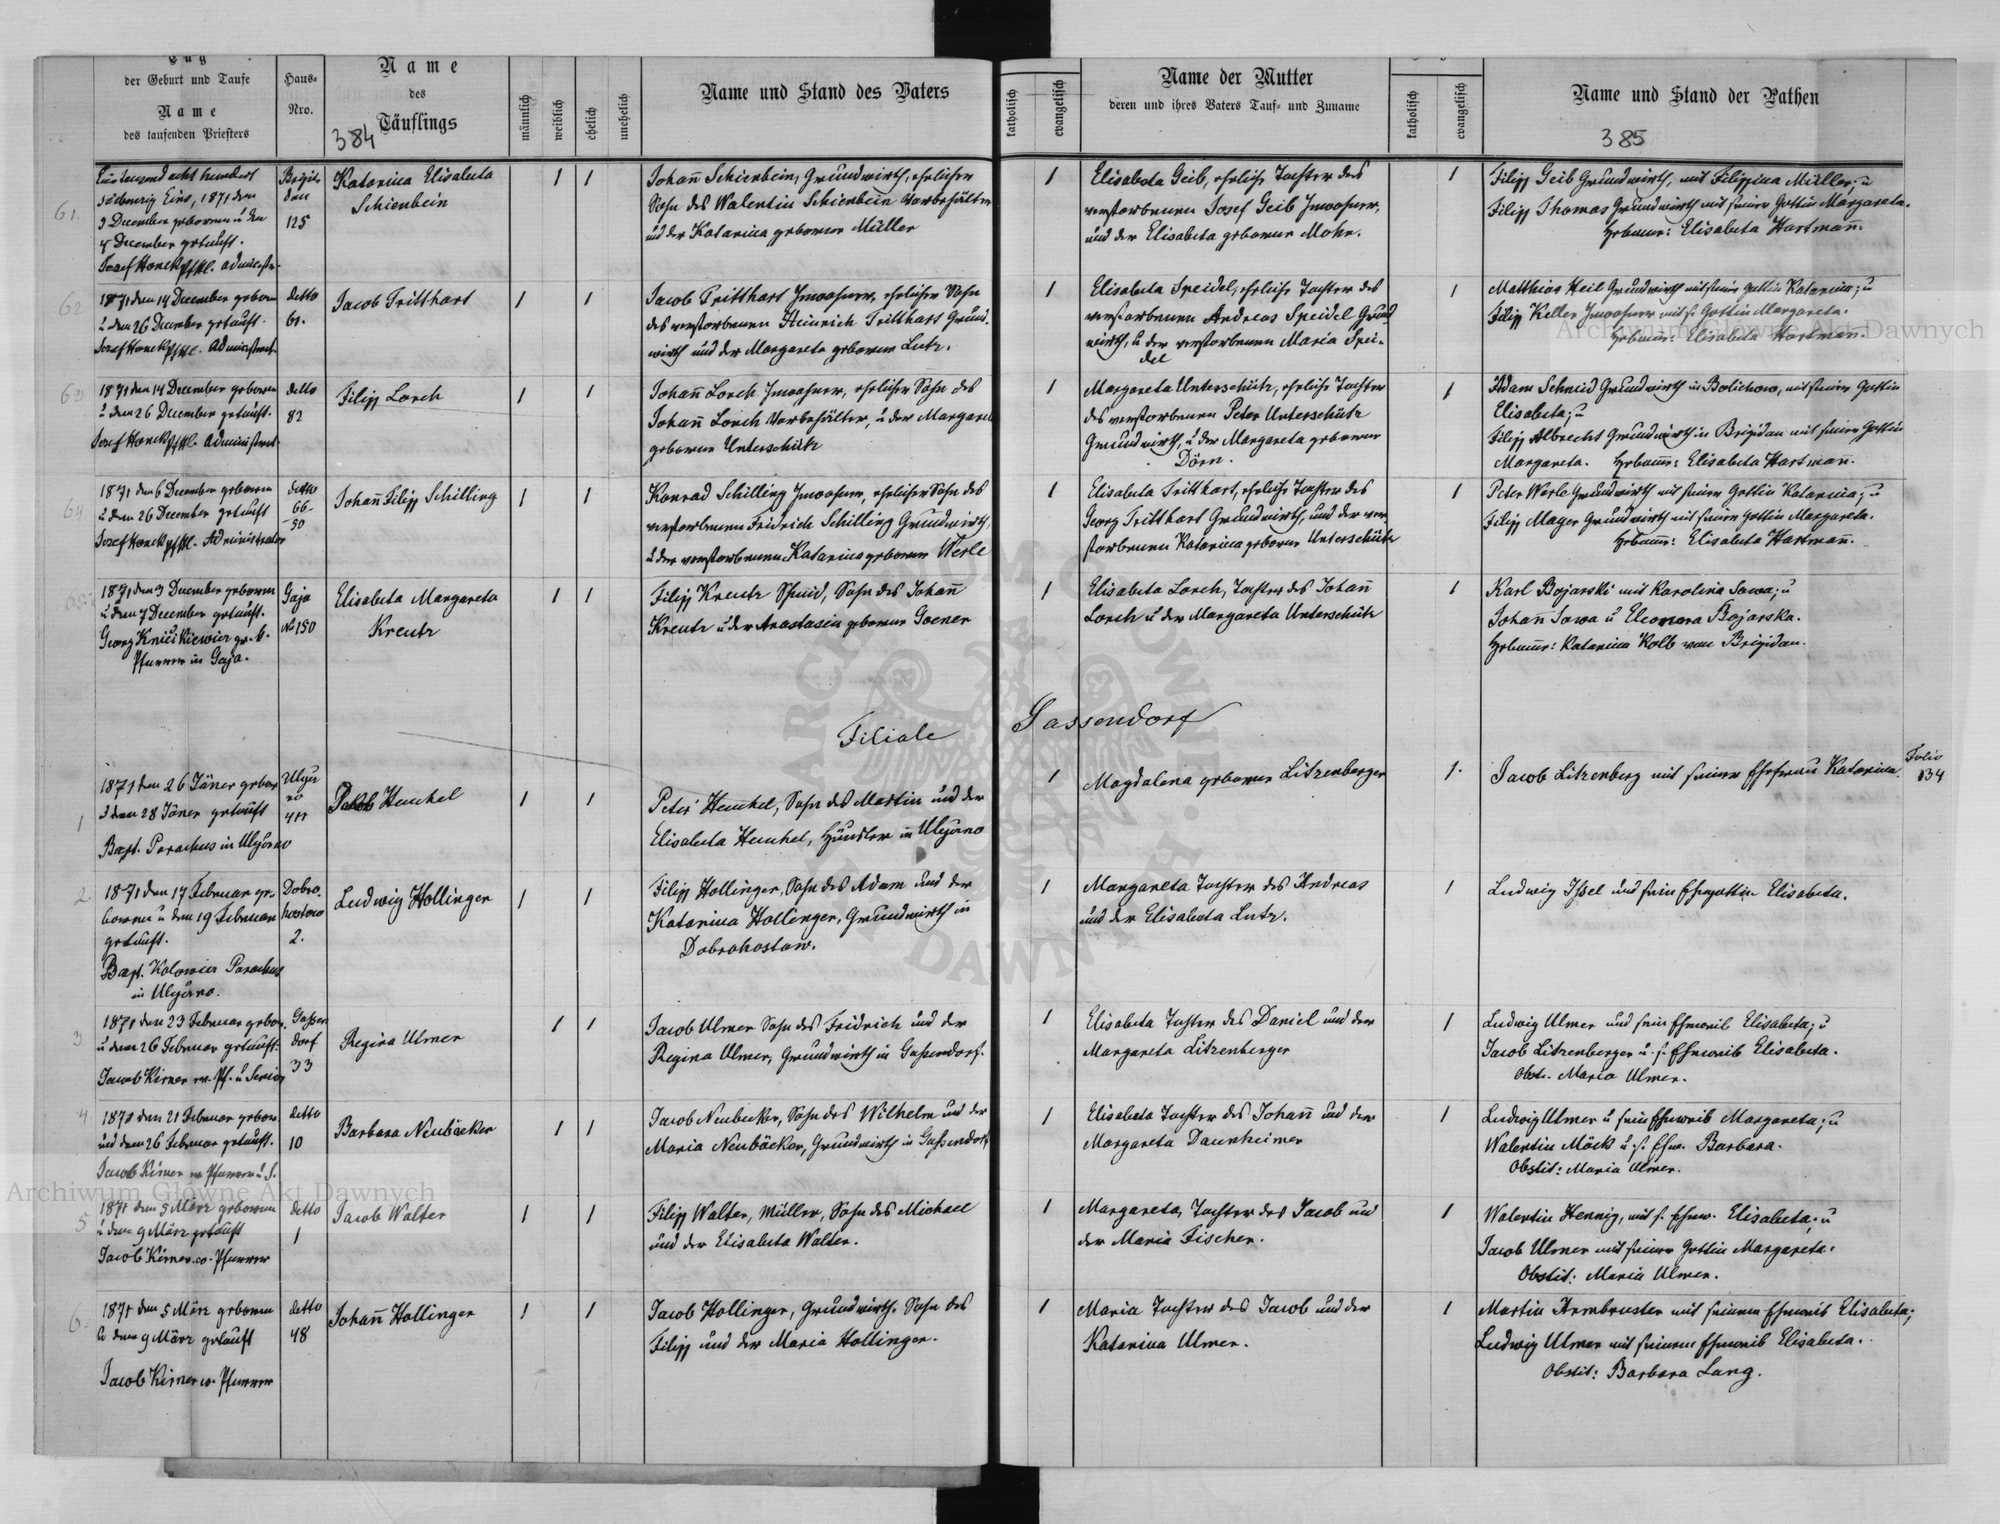 Tag
der Geburt und Taufe
Name
des taufenden Priesters
Haus-
Nro.
Name
des
Täuflings
384
männlich
weiblich
ehelich
unehelich
Name und Stand des Vaters
katholisch
evangelisch
Name der Mutter
deren und ihres Vaters Tauf- und Zuname
katholisch
evangelisch
Name und Stand der Pathen
385
61.
Ein tausend acht hundert
siebenzig Eins, 1871 den
3 December geboren u den
4 December getauft.
Josef Honek Pfkl. Administr.
Brigi-
dau
125
Katarina Elisabeta
Schienbein
1 1
Johann Schienbein, Grundwirth, ehelicher
Sohn des Walentin Schienbein Vorbehälter
und der Katarina geborner Müller
1
Elisabeta Geib, eheliche Tochter des
verstorbenen Josef Geib Inwohner,
und der Elisabeta geborner Mohr.
1
Filipp Geib Grundwirth, mit Filippina Müller; u
Filipp Thomas Grundwirth mit seiner Gattin Margareta.
Hebamme: Elisabeta Hartmann.
62
1871 den 14 December geboren
u den 26 December getauft.
Josef Honek Pfkl. Administrat.
detto
61.
Jacob Tritthart
1 1
Jacob Tritthart Inwohner, ehelicher Sohn
des verstorbenen Heinrich Tritthart Grund-
wirth und der Margareta geborner Lutz.
1
Elisabeta Speidel, eheliche Tochter des
verstorbenen Andreas Speidel Grund
wirth, u der verstorbenen Maria Spei-
del
1
Matthias Heil Grundwirth mit seiner Gattin Katarina; u
Filipp Keller Inwohner mit s. Gattin Margareta.
Hebamme: Elisabeta Hartmann.
63
1871 den 14 December geboren
u den 26 December getauft.
Josef Honek Pfkl. Administrat.
detto
82
Filipp Lorch
1 1
Johann Lorch Inwohner, ehelicher Sohn des
Johann Lorch Vorbehälter, u der Margareta
geborner Unterschütz
1
Margareta Unterschütz, eheliche Tochter
des verstorbenen Peter Unterschütz
Grundwirth, u der Margareta geborner
Dörn.
1
Adam Schmid Grundwirth in Bolichow, mit seiner Gattin
Elisabeta; u
Filipp Albrecht Grundwirth in Brigidau mit seiner Gattin
Margareta. Hebamme: Elisabeta Hartmann.
64
1871 den 6 December geboren
u den 26 December getauft
Josef Honek Pfkl. Administrator
detto
66-
50
Johann Filipp Schilling
1 1
Konrad Schilling Inwohner, ehelicher Sohn des
verstorbenen Fridrich Schilling Grundwirth,
u der verstorbenen Katarina geborner Werle
1
Elisabeta Tritthart, eheliche Tochter des
Georg Tritthart Grundwirth, und der ver
storbenen Katarina geborner Unterschütz
1
Peter Werle Grundwirth mit seiner Gattin Katarina; u
Filipp Mayer Grundwirth mit seiner Gattin Margareta.
Hebamme: Elisabeta Hartmann.
65.
1871 den 3 December geboren
u den 7 December getauft.
Georg Kniukiewicz gr. k.
Pfarrer in Gaja.
Gaja
No 150
Elisabeta Margareta
Kreutz
1 1
Filipp Kreutz Schmid, Sohn des Johann
Kreutz u der Anastasia geborner Goener
1
Elisabeta Lorch, Tochter des Johann
Lorch u der Margareta Unterschütz
1
Karl Bojarski mit Karolina Sowa; u
Johann Sowa u Eleonora Bojarska.
Hebamme: Katarina Kolb von Brigidau.
Filiale Gassendorf
1
1871 den 26 Jäner gebor
u den 28 Jäner getauft
Bapt. Parochus in Ulyczno
Ulycz
no
411
Jakob Henkel
1 1
Peter Henkel, Sohn des Martin und der
Elisabeta Henkel, Händler in Ulyczno
1
Magdalena geborner Litzenberger
1.
Jacob Litzenberg mit seiner Ehefrau Katarina.
Folio
134
2
1871 den 17 Februar ge-
boren u den 19 Februar
getauft.
Bapt. Kolowicz Parochus
in Ulyczno.
Dobro
hostow
2.
Ludwig Hollinger
1 1
Filipp Hollinger, Sohn des Adam und der
Katarina Hollinger, Grundwirth in
Dobrohostow.
1
Margareta Tochter des Andreas
und der Elisabeta Lutz.
1
Ludwig Issel und sein Ehegattin Elisabeta.
3
1871 den 23 Februar gebor.
u den 26 Februar getauft.
Jacob Kirner ev. Pf. u Senior
Gassen
dorf
33
Regina Ulmer
1 1
Jacob Ulmer Sohn des Fridrich und der
Regina Ulmer, Grundwirth in Gassendorf.
1
Elisabeta Tochter des Daniel und der
Margareta Litzenberger
1
Ludwig Ulmer und sein Eheweib Elisabeta; u
Jacob Litzenberger u. s. Eheweib Elisabeta.
Obst. Maria Ulmer.
4
1871 den 21 Februar gebor.
und den 26 Februar getauft.
Jacob Kirner ev Pfarrer u. S.
detto
10
Barbara Neubäcker
1 1
Jacob Neubecker, Sohn des Wilhelm und der
Maria Neubäcker, Grundwirth in Gassendorf
1
Elisabeta Tochter des Johann und der
Margareta Daunheimer
1
Ludwig Ulmer u sein Eheweib Margareta; u
Walentin Möck u. s. Ehw. Barbara.
Obstit: Maria Ulmer.
5
1871 den 5 März geboren
u den 9 März getauft
Jacob Kirner ev. Pfarrer
detto
1
Jacob Walter
1 1
Filipp Walter, Müller, Sohn des Michael
und der Elisabeta Walter.
1
Margareta, Tochter des Jacob und
der Maria Fischer.
1
Walentin Hennig, mit s. Ehew. Elisabeta; u
Jacob Ulmer mit seiner Gattin Margareta.
Obstit: Maria Ulmer.
6
1871 den 5 März geboren
u den 9 März getauft
Jacob Kirner ev. Pfarrer
detto
48
Johann Hollinger
1 1
Jacob Hollinger, Grundwirth. Sohn des
Filipp und der Maria Hollinger.
1
Maria Tochter des Jacob und der
Katarina Ulmer.
1
Martin Armbruster mit seinem Eheweib Elisabeta;
Ludwig Ulmer mit seinem Eheweib Elisabeta.
Obstit: Barbara Lang.
Archiwum Głowne Akt Dawnych
Archiwum Głowne Akt Dawnych